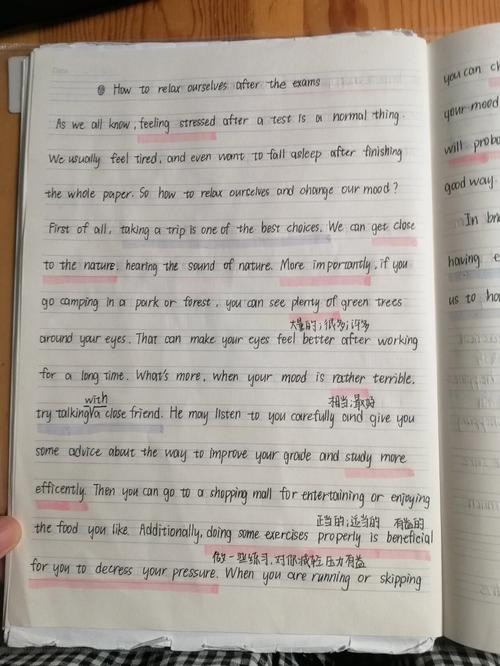 Date
How to relax ourselves after the exams
As we all know, feeling stressed after a test is a normal thing.
We usually feel tired, and even want to fall asleep after finishing
the whole paper. So how to relax ourselves and change our mood?
First of all, taking a trip is one of the best choices. We can get close
to the nature, hearing the sound of nature. More importantly, if you
go camping in a park or forest, you can see plenty of green trees
大量的;很多;许多
around your eyes. That can make your eyes feel better after working
for a long time. What's more, when your mood is rather terrible.
with
相当;最好
try talking a close friend. He may listen to you carefully and give you
some advice about the way to improve your grade and study more
efficently. Then you can go to a shopping mall for entertaining or enjoying
正当的;适当的 有益的
the food you like. Additionally, doing some exercises properly is beneficial
做一些练习,对你减轻压力有益
for you to decress your pressure. When you are running or skipping
you can ch
your mood
will prob
good way.
In br
having e
us to ho